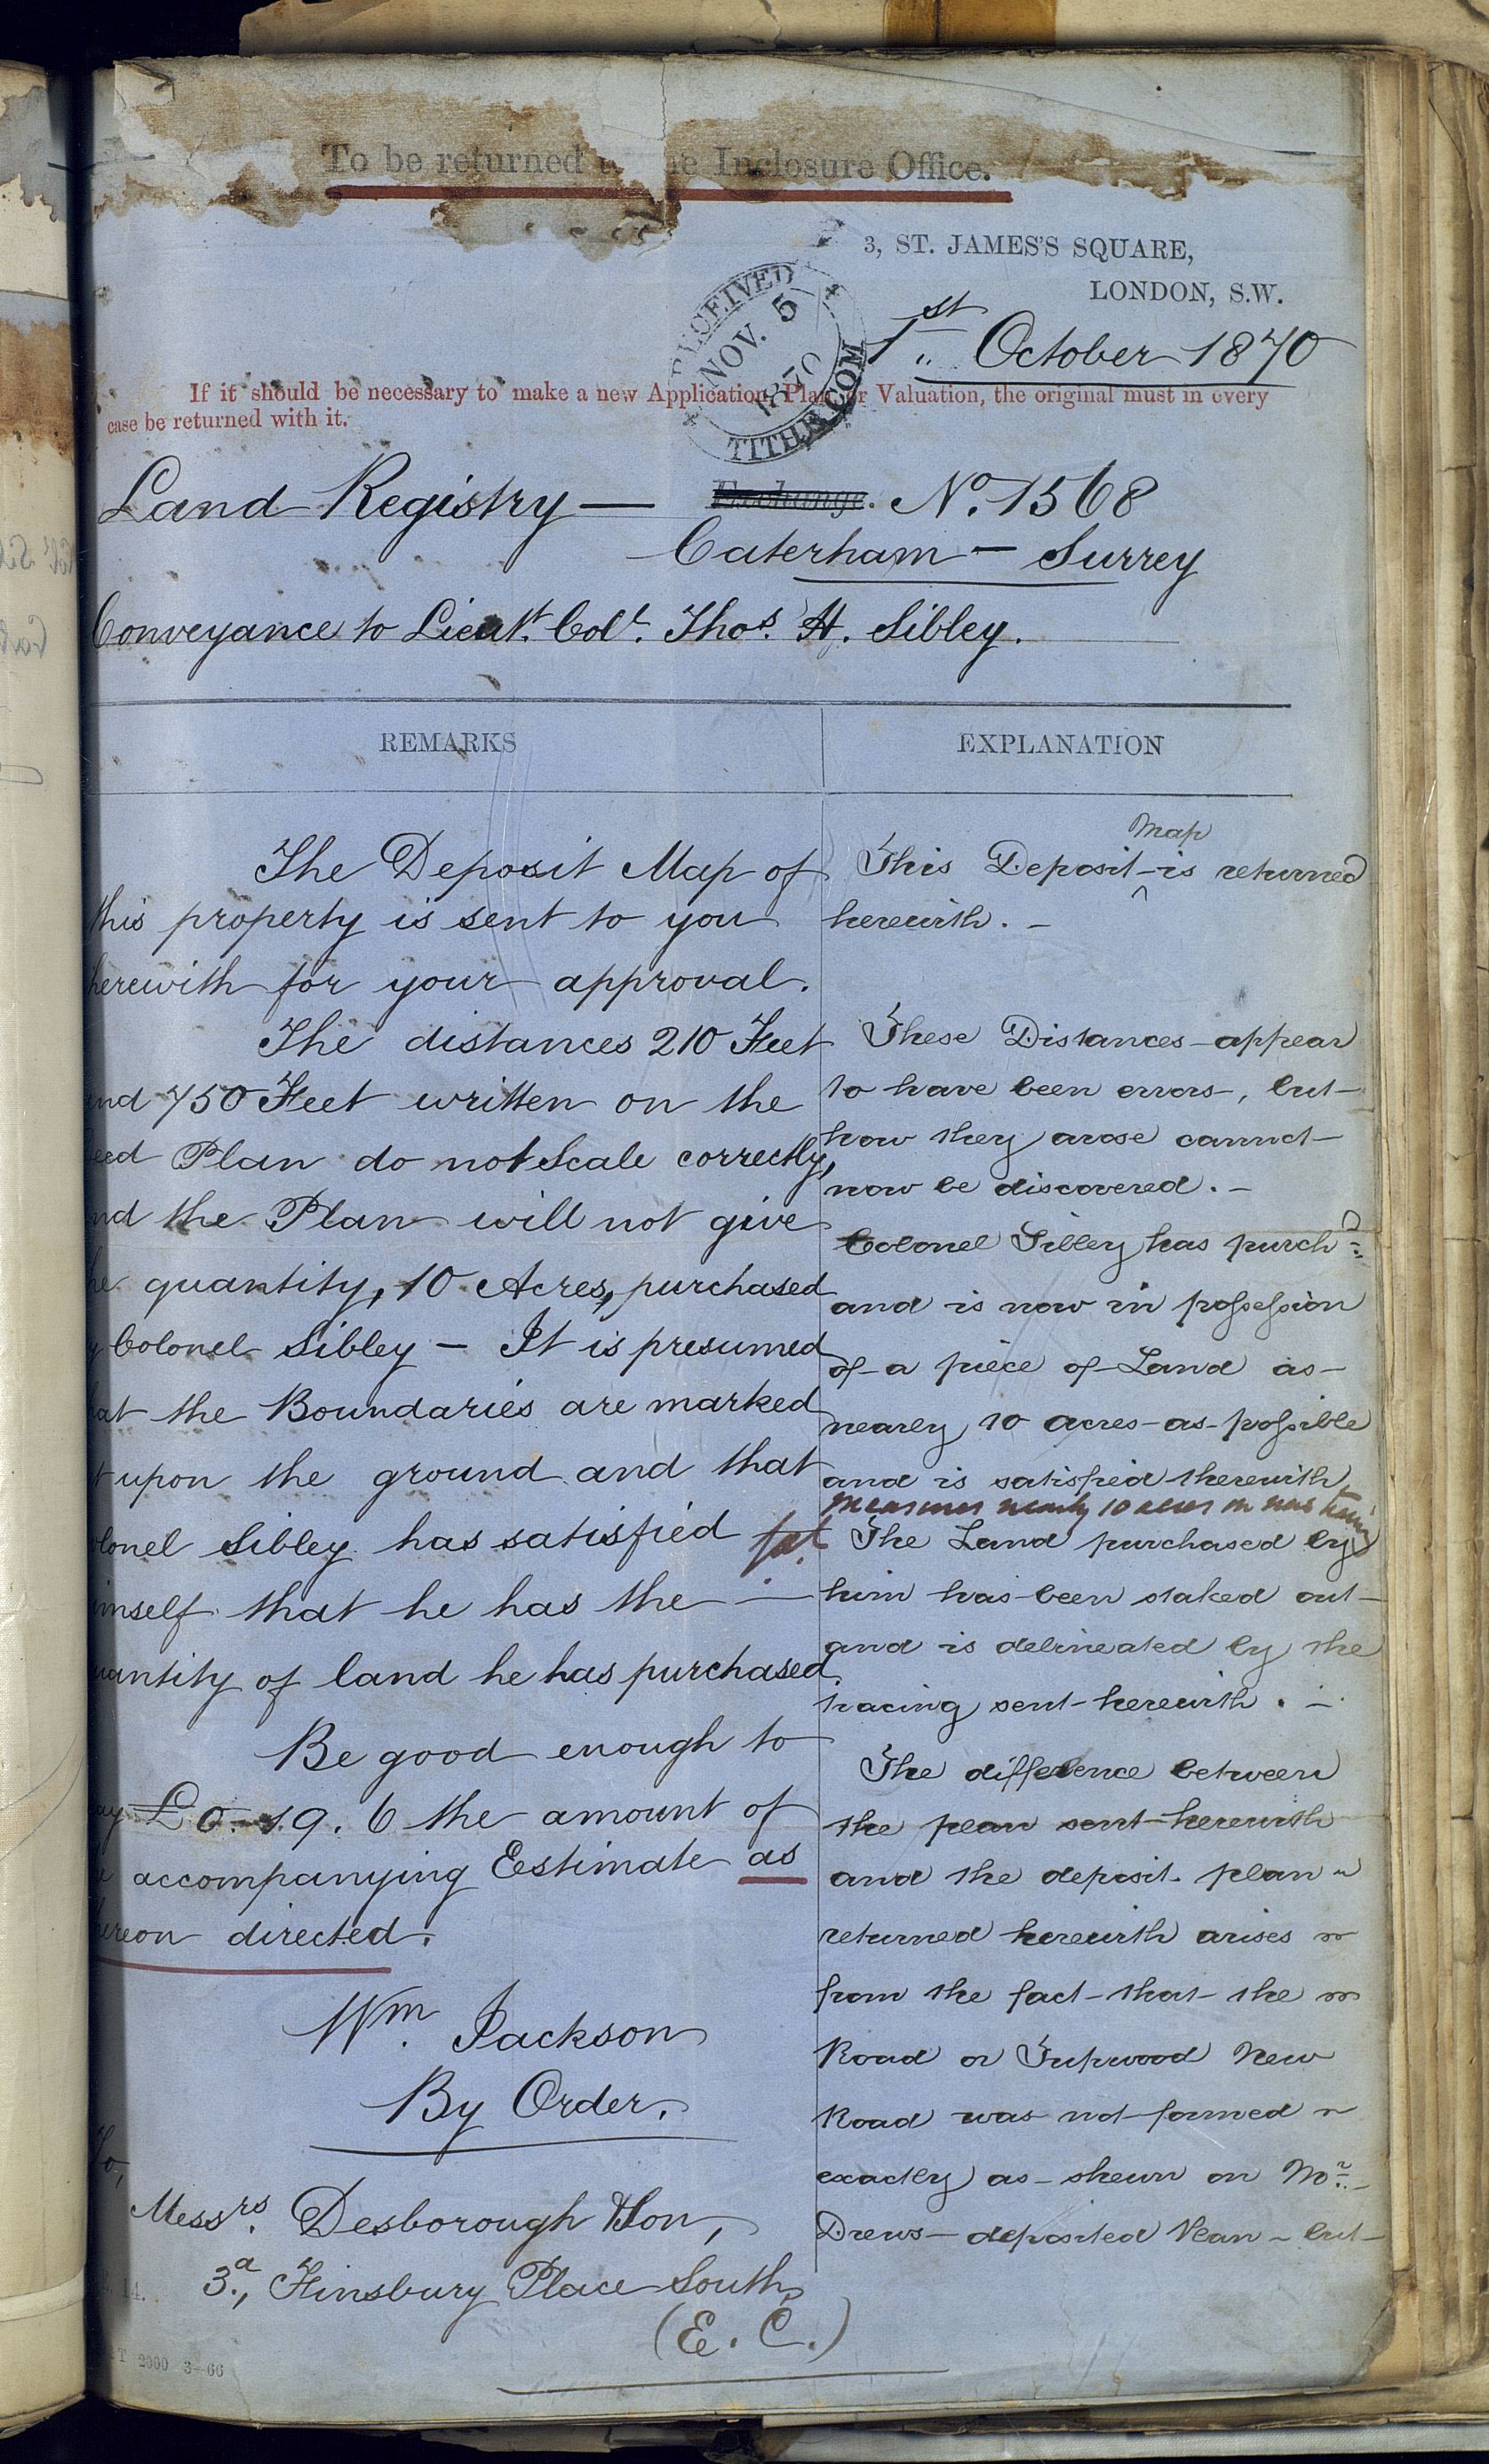 To be returned to the Inclosure Office.
3, ST. JAMES'S SQUARE,
LONDON, S.W.
RECEIVED
NOV. 5
1870
TITHE COM
1st October 1870
If it should be necessary to make a new Application, Plan, or Valuation, the original must in every
case be returned with it.
Land Registry — Exchange. No. 1568
Caterham — Surrey
Conveyance to Lieut. Col. Thos. H. Sibley.
REMARKS
The Deposit Map of
this property is sent to you
herewith for your approval.
The distances 210 Feet
and 750 Feet written on the
eed Plan do not Scale correctly,
nd the Plan will not give
he quantity, 10 Acres, purchased
y Colonel Sibley — It is presumed
hat the Boundaries are marked
t upon the ground and that
olonel Sibley has satisfied
imself that he has the —
uantity of land he has purchased
Be good enough to
ay £0.19.6 the amount of
e accompanying Eestimate as
hereon directed.
Wm. Jackson
By Order.
To,
Messrs. Desborough & Son,
3a, Finsbury Place South,
(E.C.)
14.
T 2000 3-66
EXPLANATION
Map
This Deposit is returned
herewith. —
These Distances appear
to have been errors, but
how they arose cannot
now be discovered. —
Colonel Sibley has purchd
and is now in possession
of a piece of Land as
nearly 10 acres as possible
and is satisfied therewith
measures nearly 10 acres on
The Land purchased by
him has been staked out
and is delineated by the
tracing sent herewith. —
The difference between
the plan sent herewith
and the deposit plan
returned herewith arises
from the fact that the
Road or Tupwood New
Road was not formed
exactly as shewn on Mr.
Drews deposited Plan but